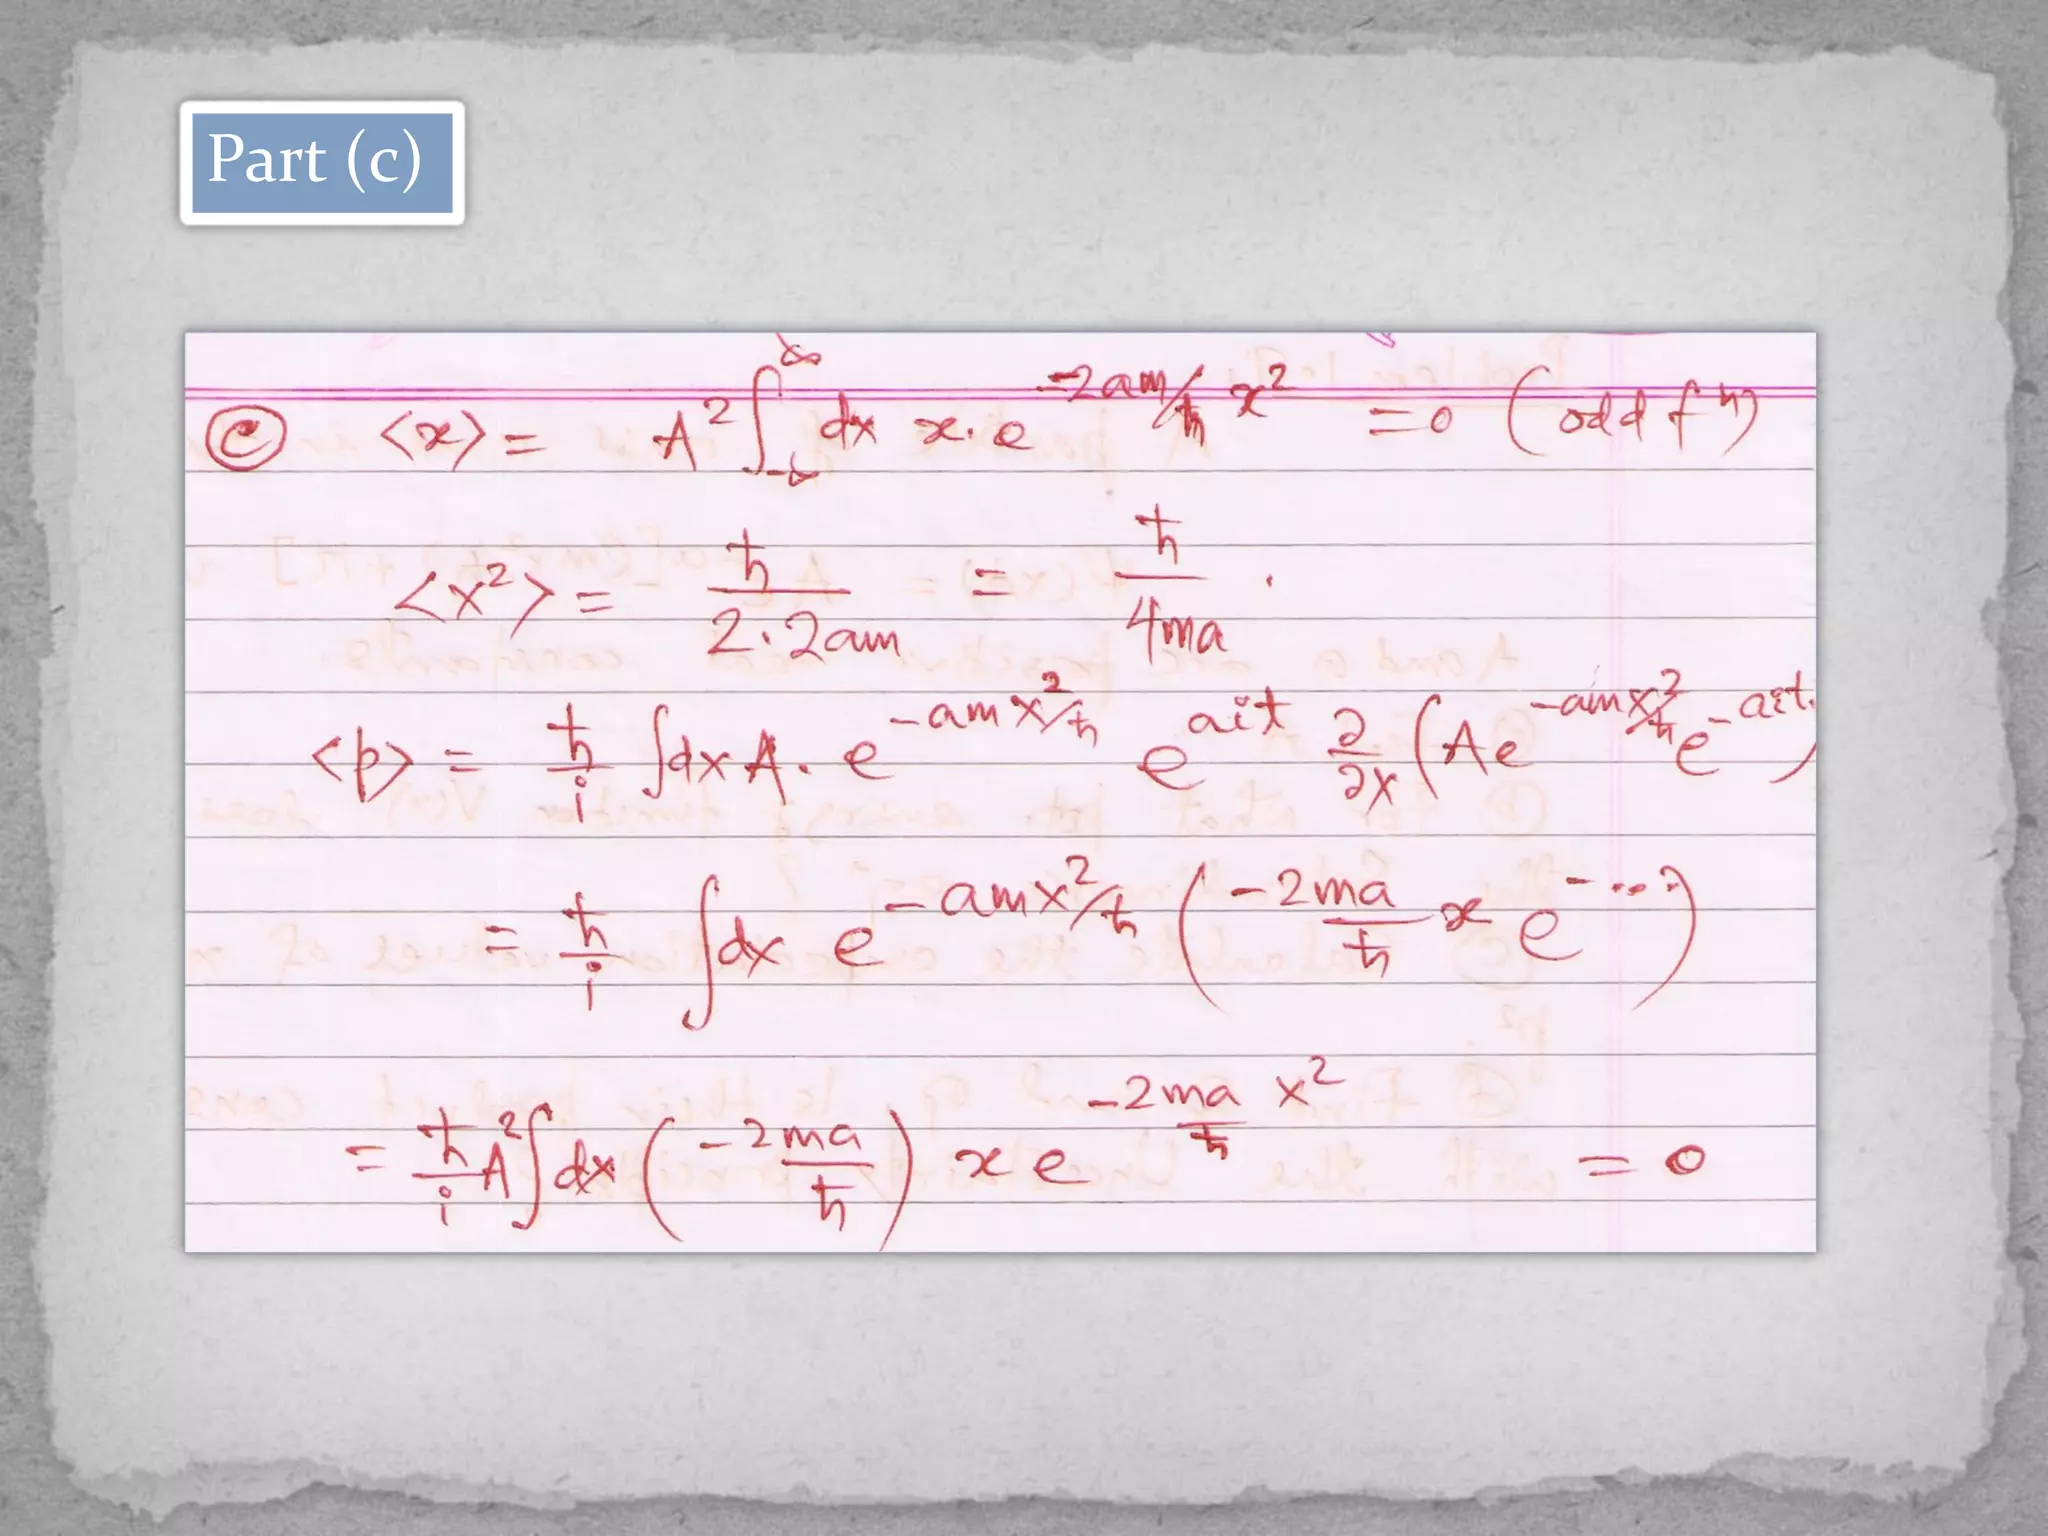 Part (c)
(c) <x> = A² ∫_{-∞}^{∞} dx x·e^{-2am/ħ x²} = 0 (odd fⁿ)
<x²> = ħ/(2·2am) = ħ/(4ma).
<p> = ħ/i ∫dx A· e^{-amx²/ħ} e^{ait} ∂/∂x (A e^{-amx²/ħ} e^{-ait})
= ħ/i ∫dx e^{-amx²/ħ} (-2ma/ħ x e^{-...})
= ħ/i A² ∫dx (-2ma/ħ) x e^{-2ma/ħ x²} = 0